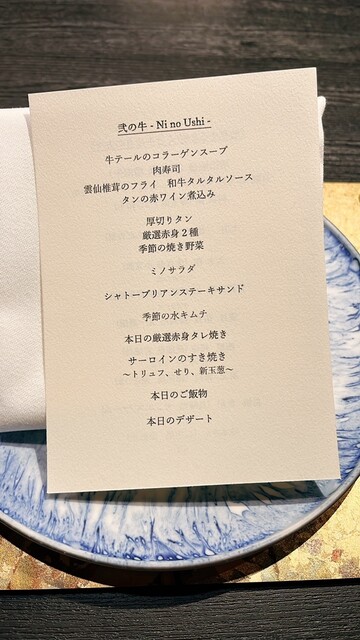 弐の牛 - Ni no Ushi -
牛テールのコラーゲンスープ
肉寿司
雲仙椎茸のフライ　和牛タルタルソース
タンの赤ワイン煮込み
厚切りタン
厳選赤身２種
季節の焼き野菜
ミノサラダ
シャトーブリアンステーキサンド
季節の水キムチ
本日の厳選赤身タレ焼き
サーロインのすき焼き
～トリュフ、せり、新玉葱～
本日のご飯物
本日のデザート